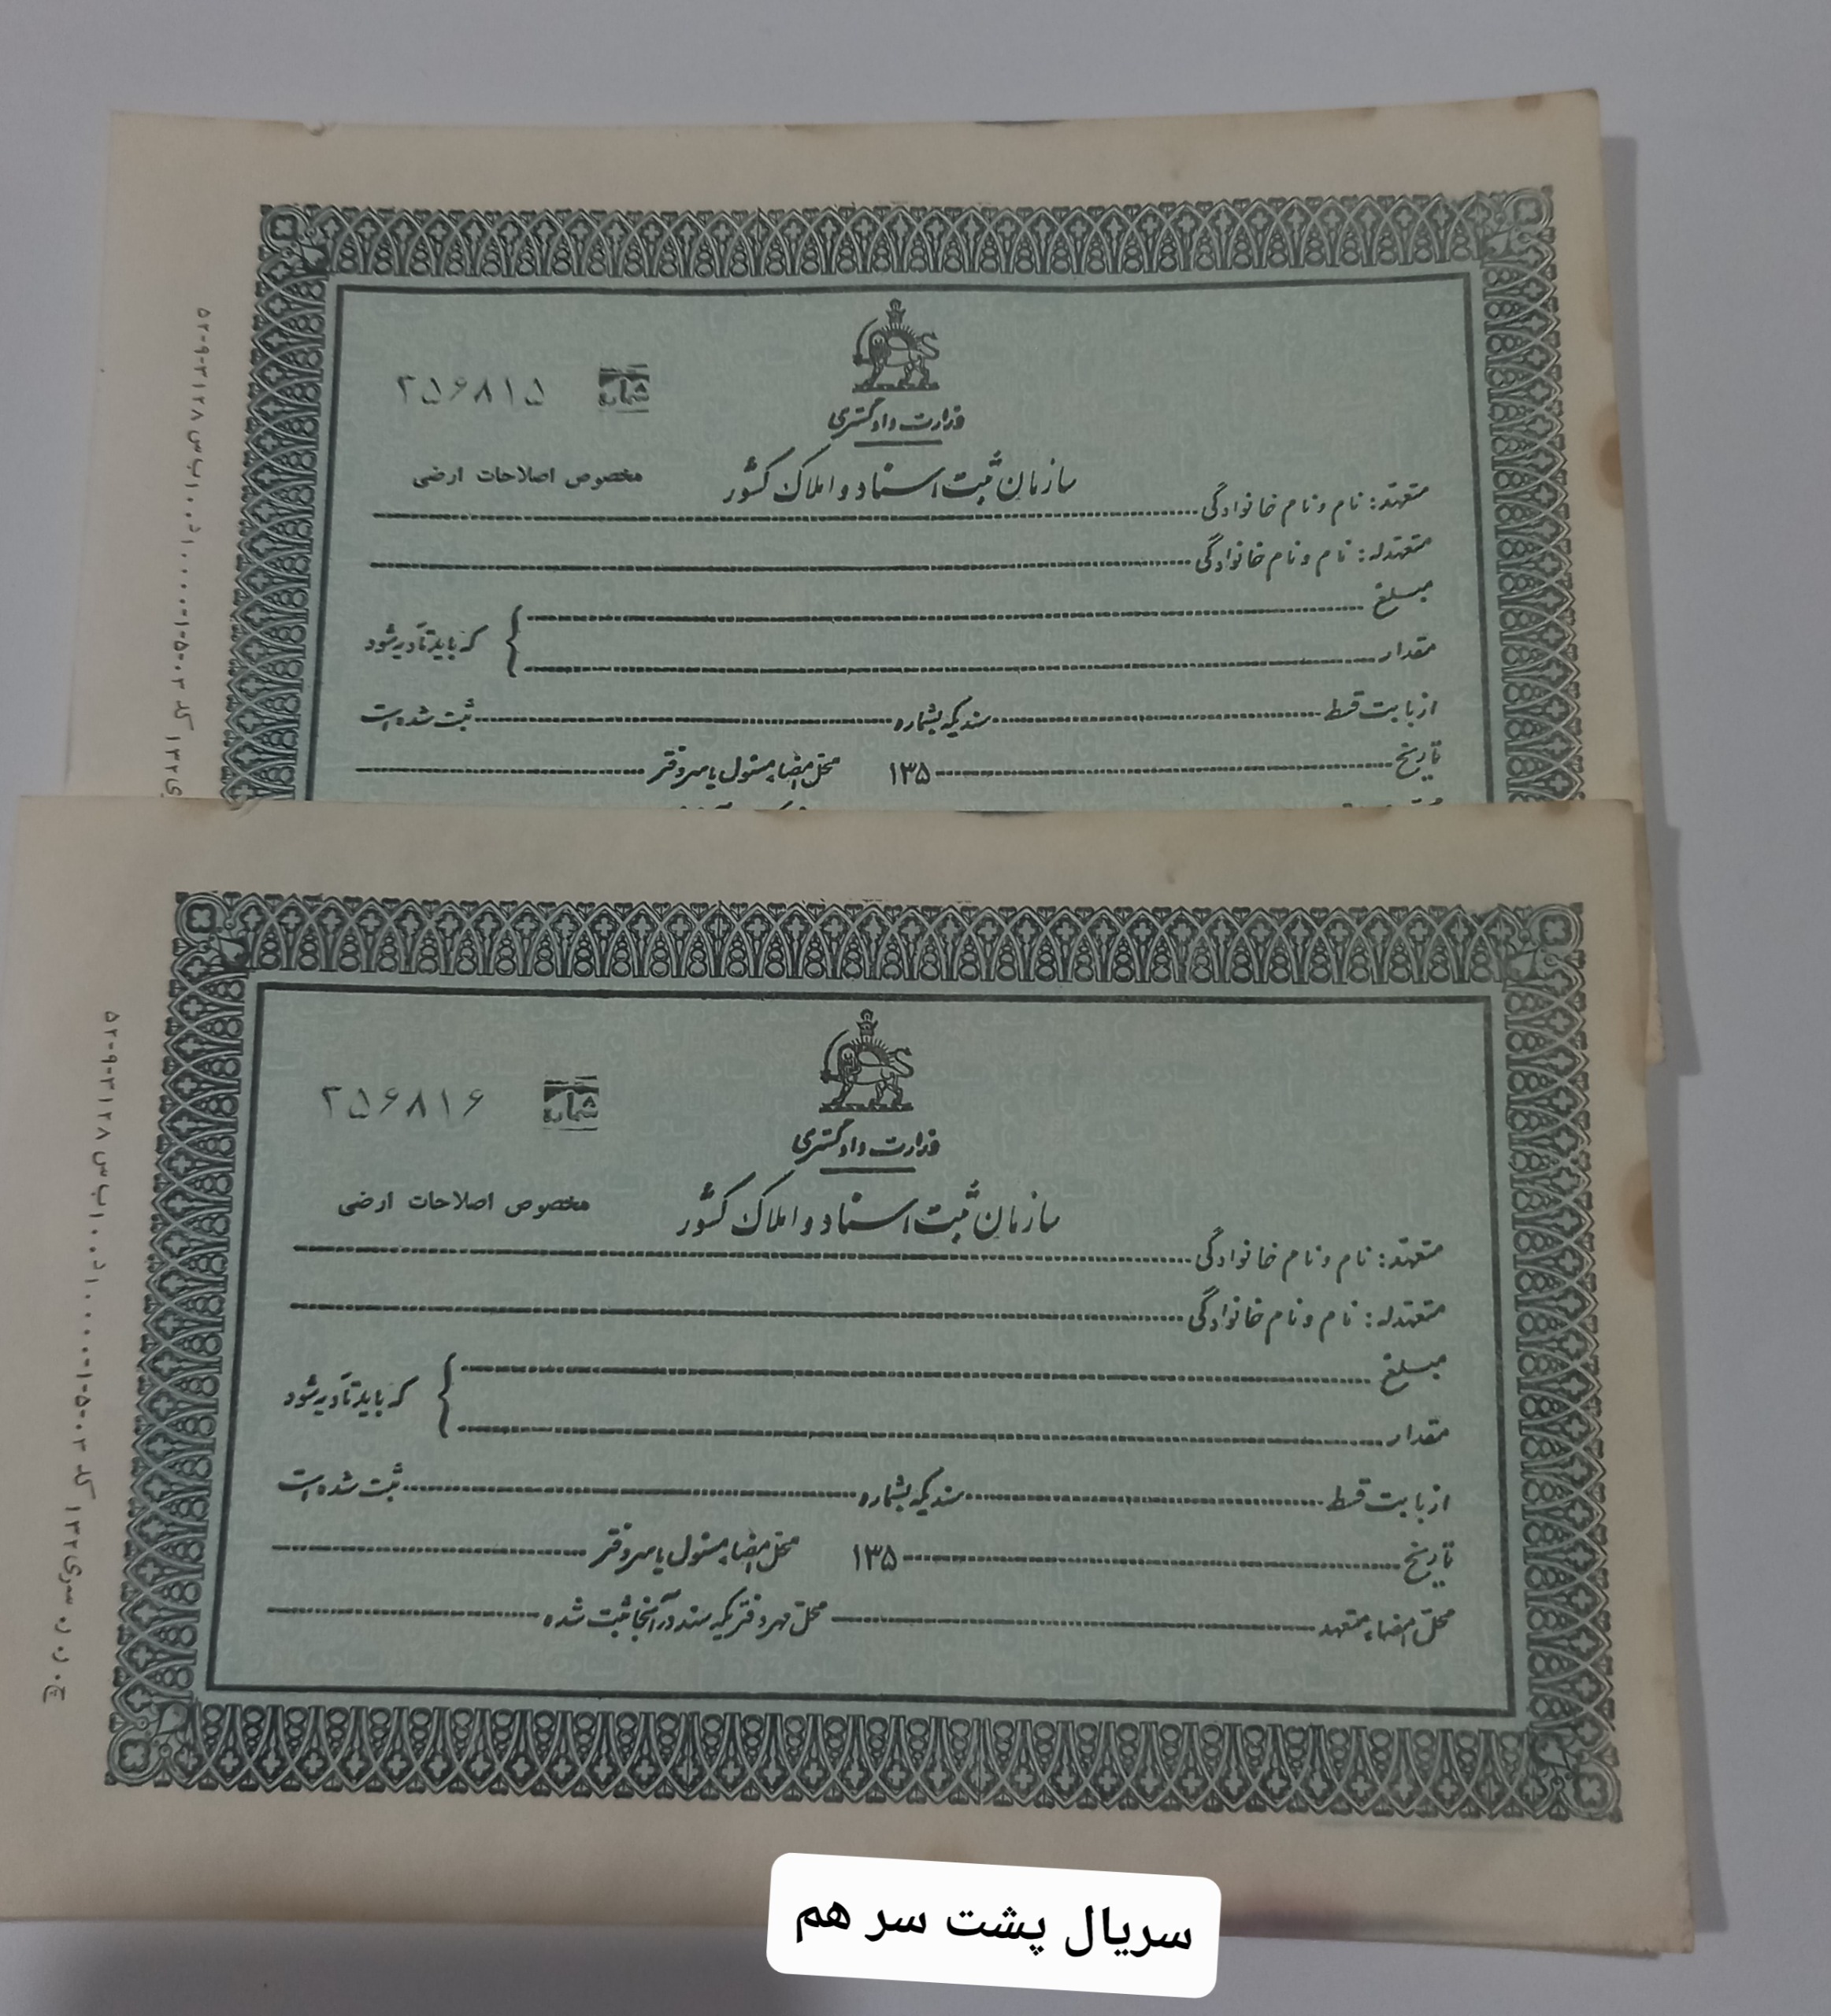 شماره ۲۵۶۸۱۵
وزارت دادگستری
سازمان ثبت اسناد و املاک کشور
مخصوص اصلاحات ارضی
متعهد: نام و نام خانوادگی
متعهدله: نام و نام خانوادگی
مبلغ
مقدار
که باید تأدیه شود
از بابت قسط سندیکه بشماره ثبت شده است
تاریخ ۱۳۵ محل امضاء مسئول یا سردفتر
شماره ۲۵۶۸۱۶
وزارت دادگستری
سازمان ثبت اسناد و املاک کشور
مخصوص اصلاحات ارضی
متعهد: نام و نام خانوادگی
متعهدله: نام و نام خانوادگی
مبلغ
مقدار
که باید تأدیه شود
از بابت قسط سندیکه بشماره ثبت شده است
تاریخ ۱۳۵ محل امضاء مسئول یا سردفتر
محل امضاء متعهد محل مهر دفتریکه سند در آنجا ثبت شده
سریال پشت سر هم